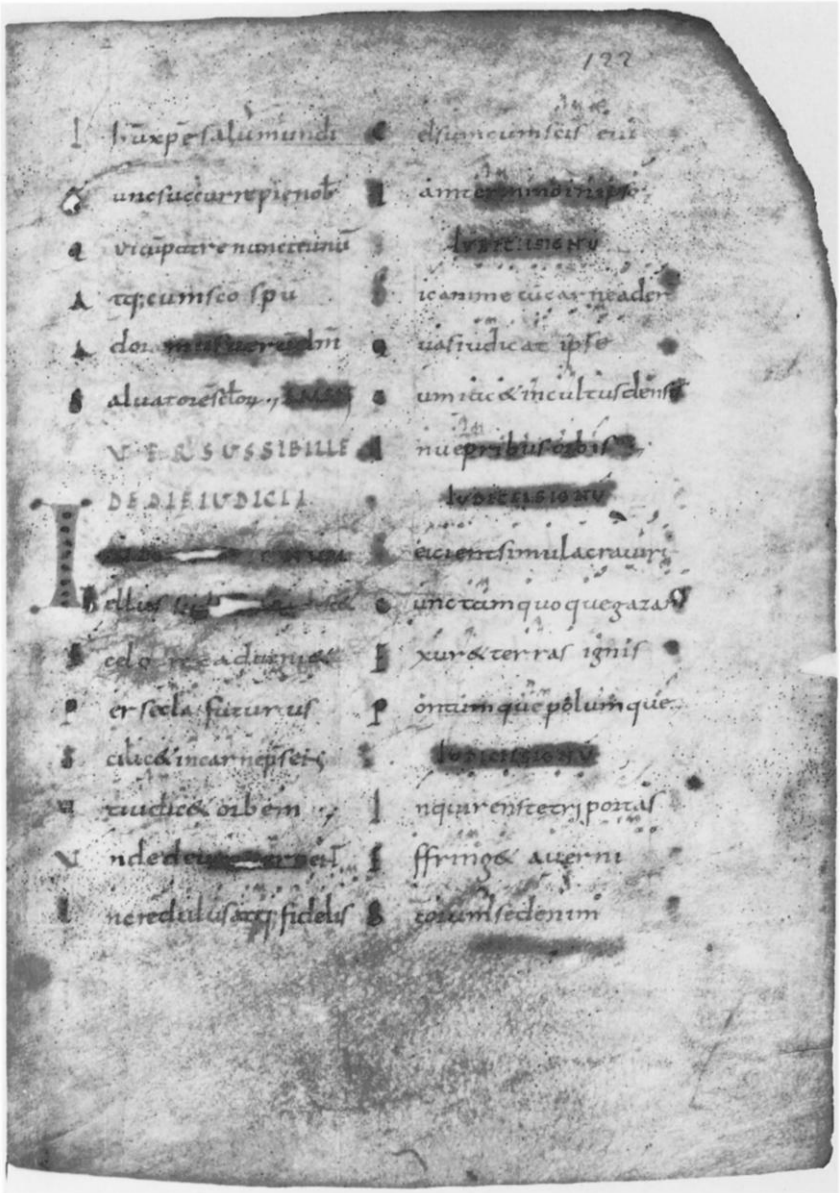 Ihū xpē salu mundi
unc succurre pie nob
Qui cū patre nunc et unū
Atq; cum sco spu
saluatore sctoꝝ AMEN
VERSUS SIBILLE
DE DIE IUDICII
E celo rex adueniet
Per secla futurus
Scilic& in carne p̄sens
ut iudic& orbem
Unde deū
Incredulus atq; fidelis
celsum cum scis eui
Iam termino in ipso
IUDICII SIGNU
Sic anime cu carneader
quas iudicat ipse
um iac& incultus densis
In uepribus orbis
IUDICII SIGNU
eicient simulacra uiri
cunctam quoque gazam
Exur& terras ignis
Pontumque polumque
IUDICII SIGNU
Inquirens tetri portas
Effring& auerni
sed enim
122